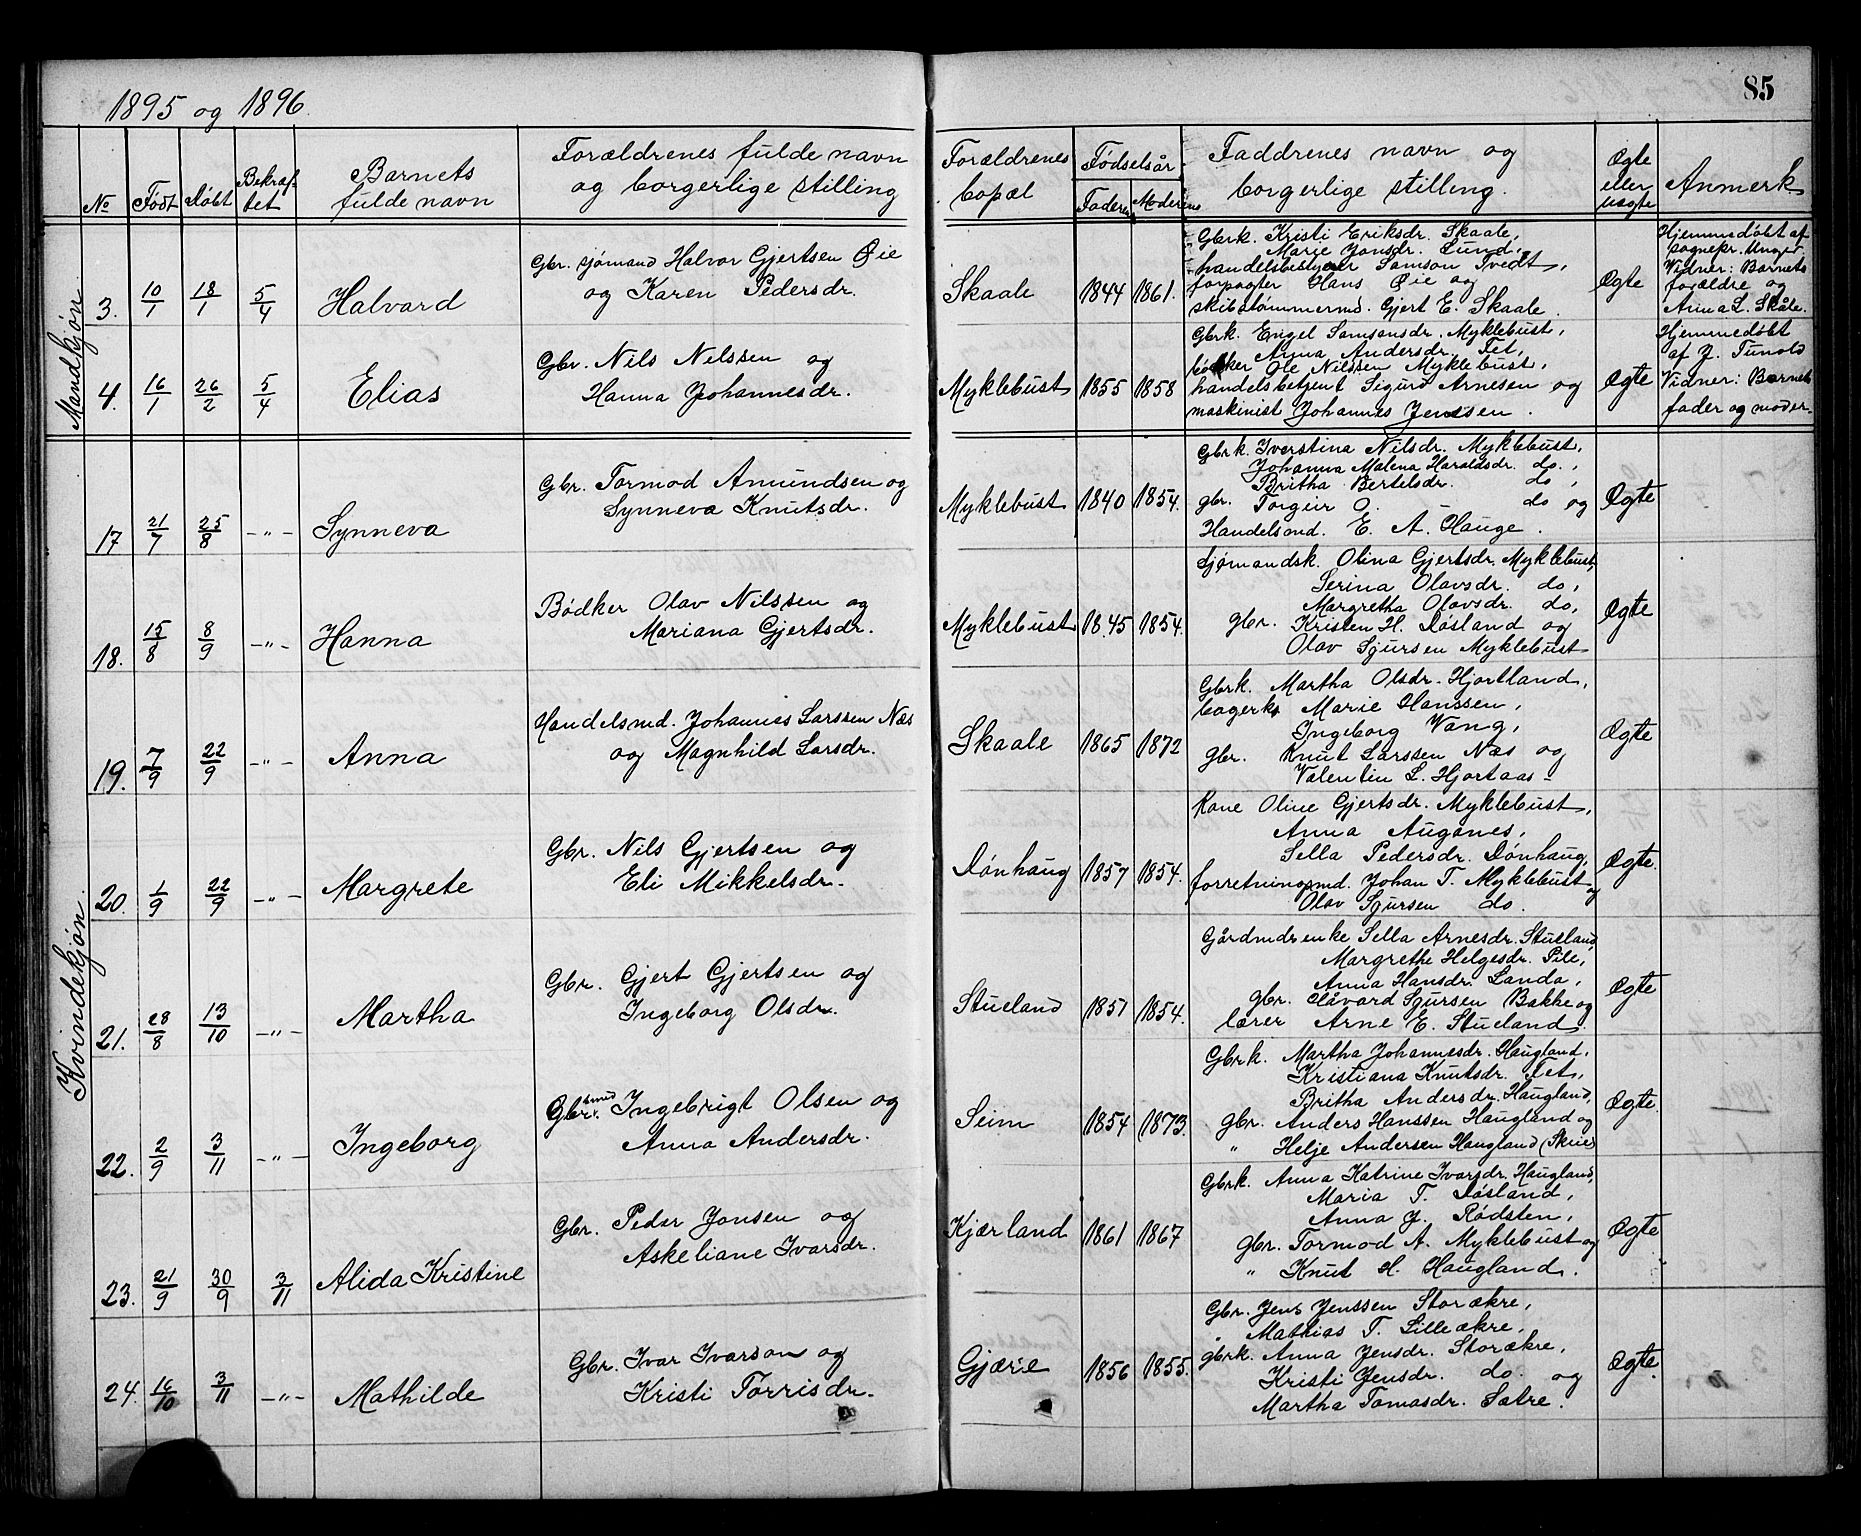 1895 og 1896.
85
No
Født
Døbt
Bekræf-
tet
Barnets
fulde navn
Forældrenes fulde navn
og borgerlige stilling
Forældrenes
bopæl
Fødselsår
Faderens
Moderens
Faddrenes navn og
borgerlige stilling.
Ægte
eller
uægte
Anmerk
Mandkjøn
3. 10/1 18/1 5/4 Halvard
Gbr. sjømand Halvor Gjertsen Øie
og Karen Pedersdr.
Skaale 1844 1861.
Gbrk. Kristi Eriksdr. Skaale,
Marie Jonsdr. Lund,
handelsbestyrer Samson Tvedt,
forpagter Hans Øie og
skibstømmermd. Gjert E. Skaale.
Ægte
Hjemmedøbt af
sognepr. Unger
Vidner: Barnets
forældre og
Anna L. Skåle.
4. 16/1 26/2 5/4 Elias
Gbr. Nils Nilssen og
Hanna Johannesdr.
Myklebust 1855 1858
Gbrk. Engel Samsonsdr. Myklebust,
Anna Andersdr. Tet,
bødker Ole Nilssen Myklebust,
handelsbetjent Sigurd Arnesen og
maskinist Johannes Jenssen.
Ægte
Hjemmedøbt
af J. Tunold
Vidner: Barnets
fader og moder.
Kvindekjøn.
17 21/7 25/8 -"- Synneva
Gbr. Tormod Amundsen og
Synneva Knutsdr.
Myklebust 1840 1854.
Gbrk. Iverstina Nilsdr. Myklebust,
Johanna Malena Haraldsdr. do.,
Britha Bertelsdr. do,
gbr. Torgeir O. do og
Handelsmd. E. A. Hauge.
Ægte
18. 15/8 8/9 -"- Hanna
Bødker Olav Nilssen og
Mariana Gjertsdr.
Myklebust 1845 1854.
Sjømandsk. Olina Gjertsdr. Myklebust,
Serina Olavsdr. do,
Margretha Olavsdr. do,
gbr. Kristen H. Døsland og
Olav Sjursen Myklebust
Ægte
19. 7/9 22/9 -"- Anna
Handelsmd. Johannes Larssen Næs
og Magnhild Larsdr.
Skaale 1865 1872
Gbrk. Martha Olsdr. Hjortland,
bagerk. Marie Hanssen,
Ingeborg Vang,
gbr. Knut Larssen Næs og
Valentin L. Hjortaas-
Ægte
20. 1/9 22/9 -"- Margrete
Gbr. Nils Gjertsen og
Eli Mikkelsdr.
Dønhaug 1857 1854.
Kone Oline Gjertsdr. Myklebust,
Anna Auganes,
Sella Pedersdr. Dønhaug,
forretningsmd. Johan T. Myklebust og
Olav Sjursen do.
Ægte.
21. 28/8 13/10 -"- Martha
Gbr. Gjert Gjertsen og
Ingeborg Olsdr.
Stueland 1857 1854.
Gårdmdsenke Sella Arnesdr. Stueland,
Margrethe Helgesdr. Pile,
Anna Hansdr. Landa,
gbr. Håvard Sjursen Bakke og
lærer Arne E. Stueland.
Ægte
22. 2/9 3/11 -"- Ingeborg
Gbr. Ingebrigt Olsen og
Anna Andersdr.
Seim 1854 1873.
Gbrk. Martha Johannesdr. Haugland,
Kristiana Knutsdr. Tet,
Britha Andersdr. Haugland,
gbr. Anders Hanssen Haugland og
" Helje Andersen Haugland (Skeie)
Ægte
23. 21/9 30/9 3/11 Alida Kristine
Gbr. Peder Jonsen og
Askeliane Ivarsdr.
Kjærland 1861 1867
Gbrk. Anna Katrine Ivarsdr. Haugland,
Maria T. Døsland,
Anna J. Rødsten,
gbr. Tormod A. Myklebust og
" Knut H. Haugland.
Ægte
24. 16/10 3/11 -"- Mathilde
Gbr. Ivar Ivarson og
Kristi Torrisdr.
Gjære 1856 1855.
Gbr. Jens Jenssen Storækre,
Mathias T. Lilleækre,
gbrk. Anna Jensdr. Storækre,
Kristi Jensdr. do. og
Martha Tomasdr. Sætre.
Ægte.